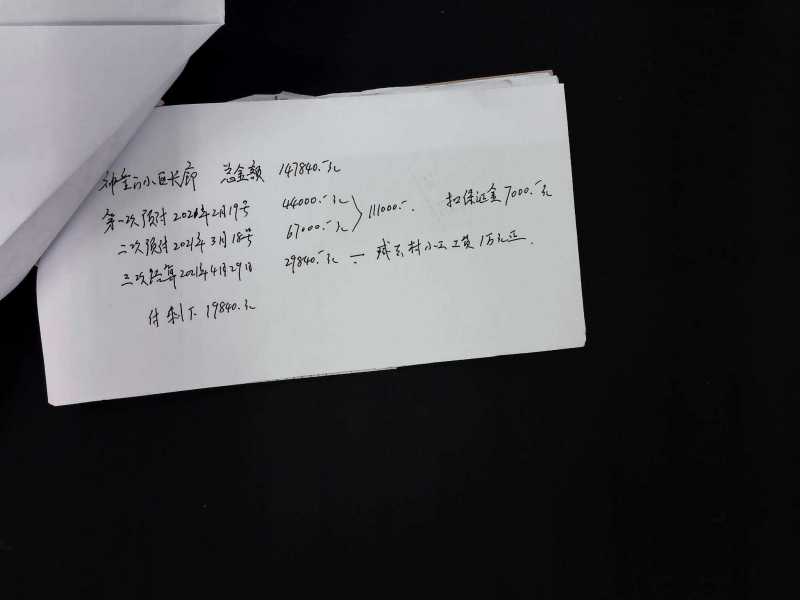 小区长廊 总金额 147840.-元
第一次预付2021年2月19号 44000.-元
二次预付2021年3月18号 67000.-元 111000.- 扣保证金7000.-元
三次结算2021年4月29日 29840.-元 一 村小工工资1万元正.
付剩下19840.元